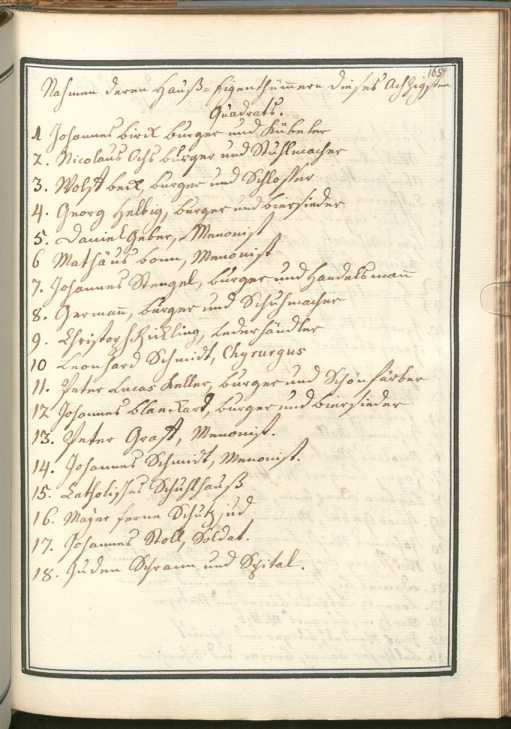 165
Nahmen deren Hauß-Eigenthümmern dieses Achzigsten
Quadrats.
1 Johannes birck burger und Kübeler
2. Nicolaus Ochs burger und Stuhlmacher
3. beck, burger und Schlosser
4. Georg Helbig, burger und biersieder
5. Daniel Geber, Menonist
6 Mathäus bonn, Menonist
7. Johannes Stengel, burger und Handelsmann
8. Germann, burger und Schuhmacher
9. Christoph Rickling, Lederhändler
10 Leonhard Schmidt, Chyrurgus
11. Peter Lucas Keller, burger und Schönfärber
12 Johannes blanckard, burger und biersieder
13. Peter Graff, Menonist.
14. Johannes Schmidt, Menonist.
15. Catholisches Schuhlhauß
16. Mayer Schutzjud
17. Johannes Stoll, Soldat.
18. Juden Schrann und Spital.